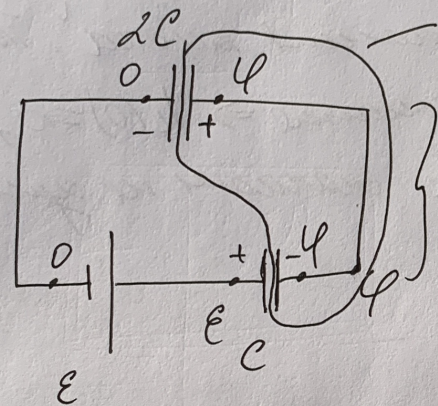 2C
0 φ
- +
0 + - φ
φ
ε C
ε